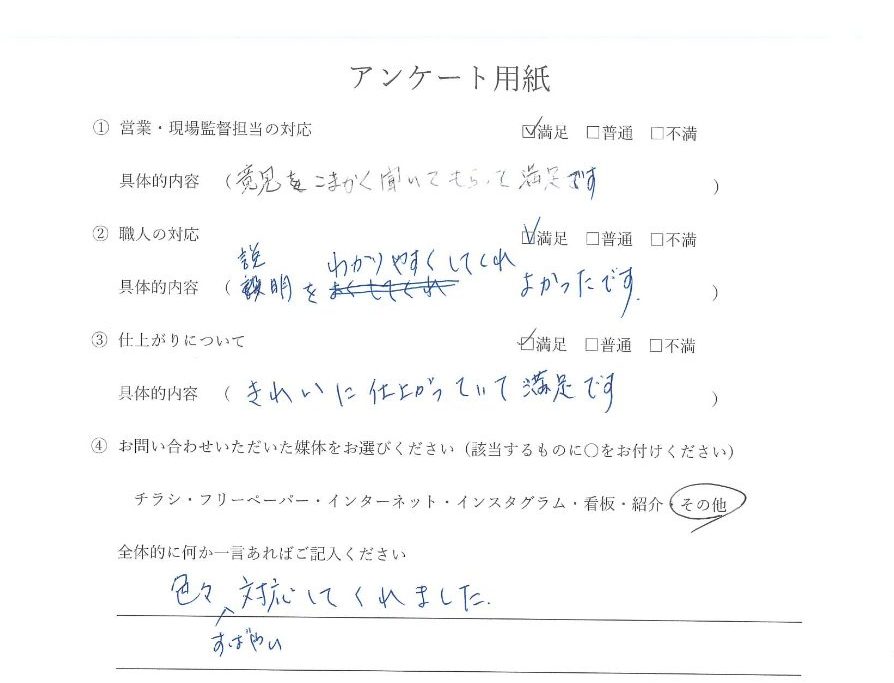 アンケート用紙
① 営業・現場監督担当の対応 ☑満足 □普通 □不満
具体的内容 （意見をこまかく聞いてもらって満足です）
② 職人の対応 ☑満足 □普通 □不満
説 わかりやすくしてくれ
具体的内容 （説明を よかったです.）
③ 仕上がりについて ☑満足 □普通 □不満
具体的内容 （きれいに仕上がっていて満足です）
④ お問い合わせいただいた媒体をお選びください（該当するものに○をお付けください）
チラシ・フリーペーパー・インターネット・インスタグラム・看板・紹介・その他
全体的に何か一言あればご記入ください
色々 対応してくれました.
すばやい